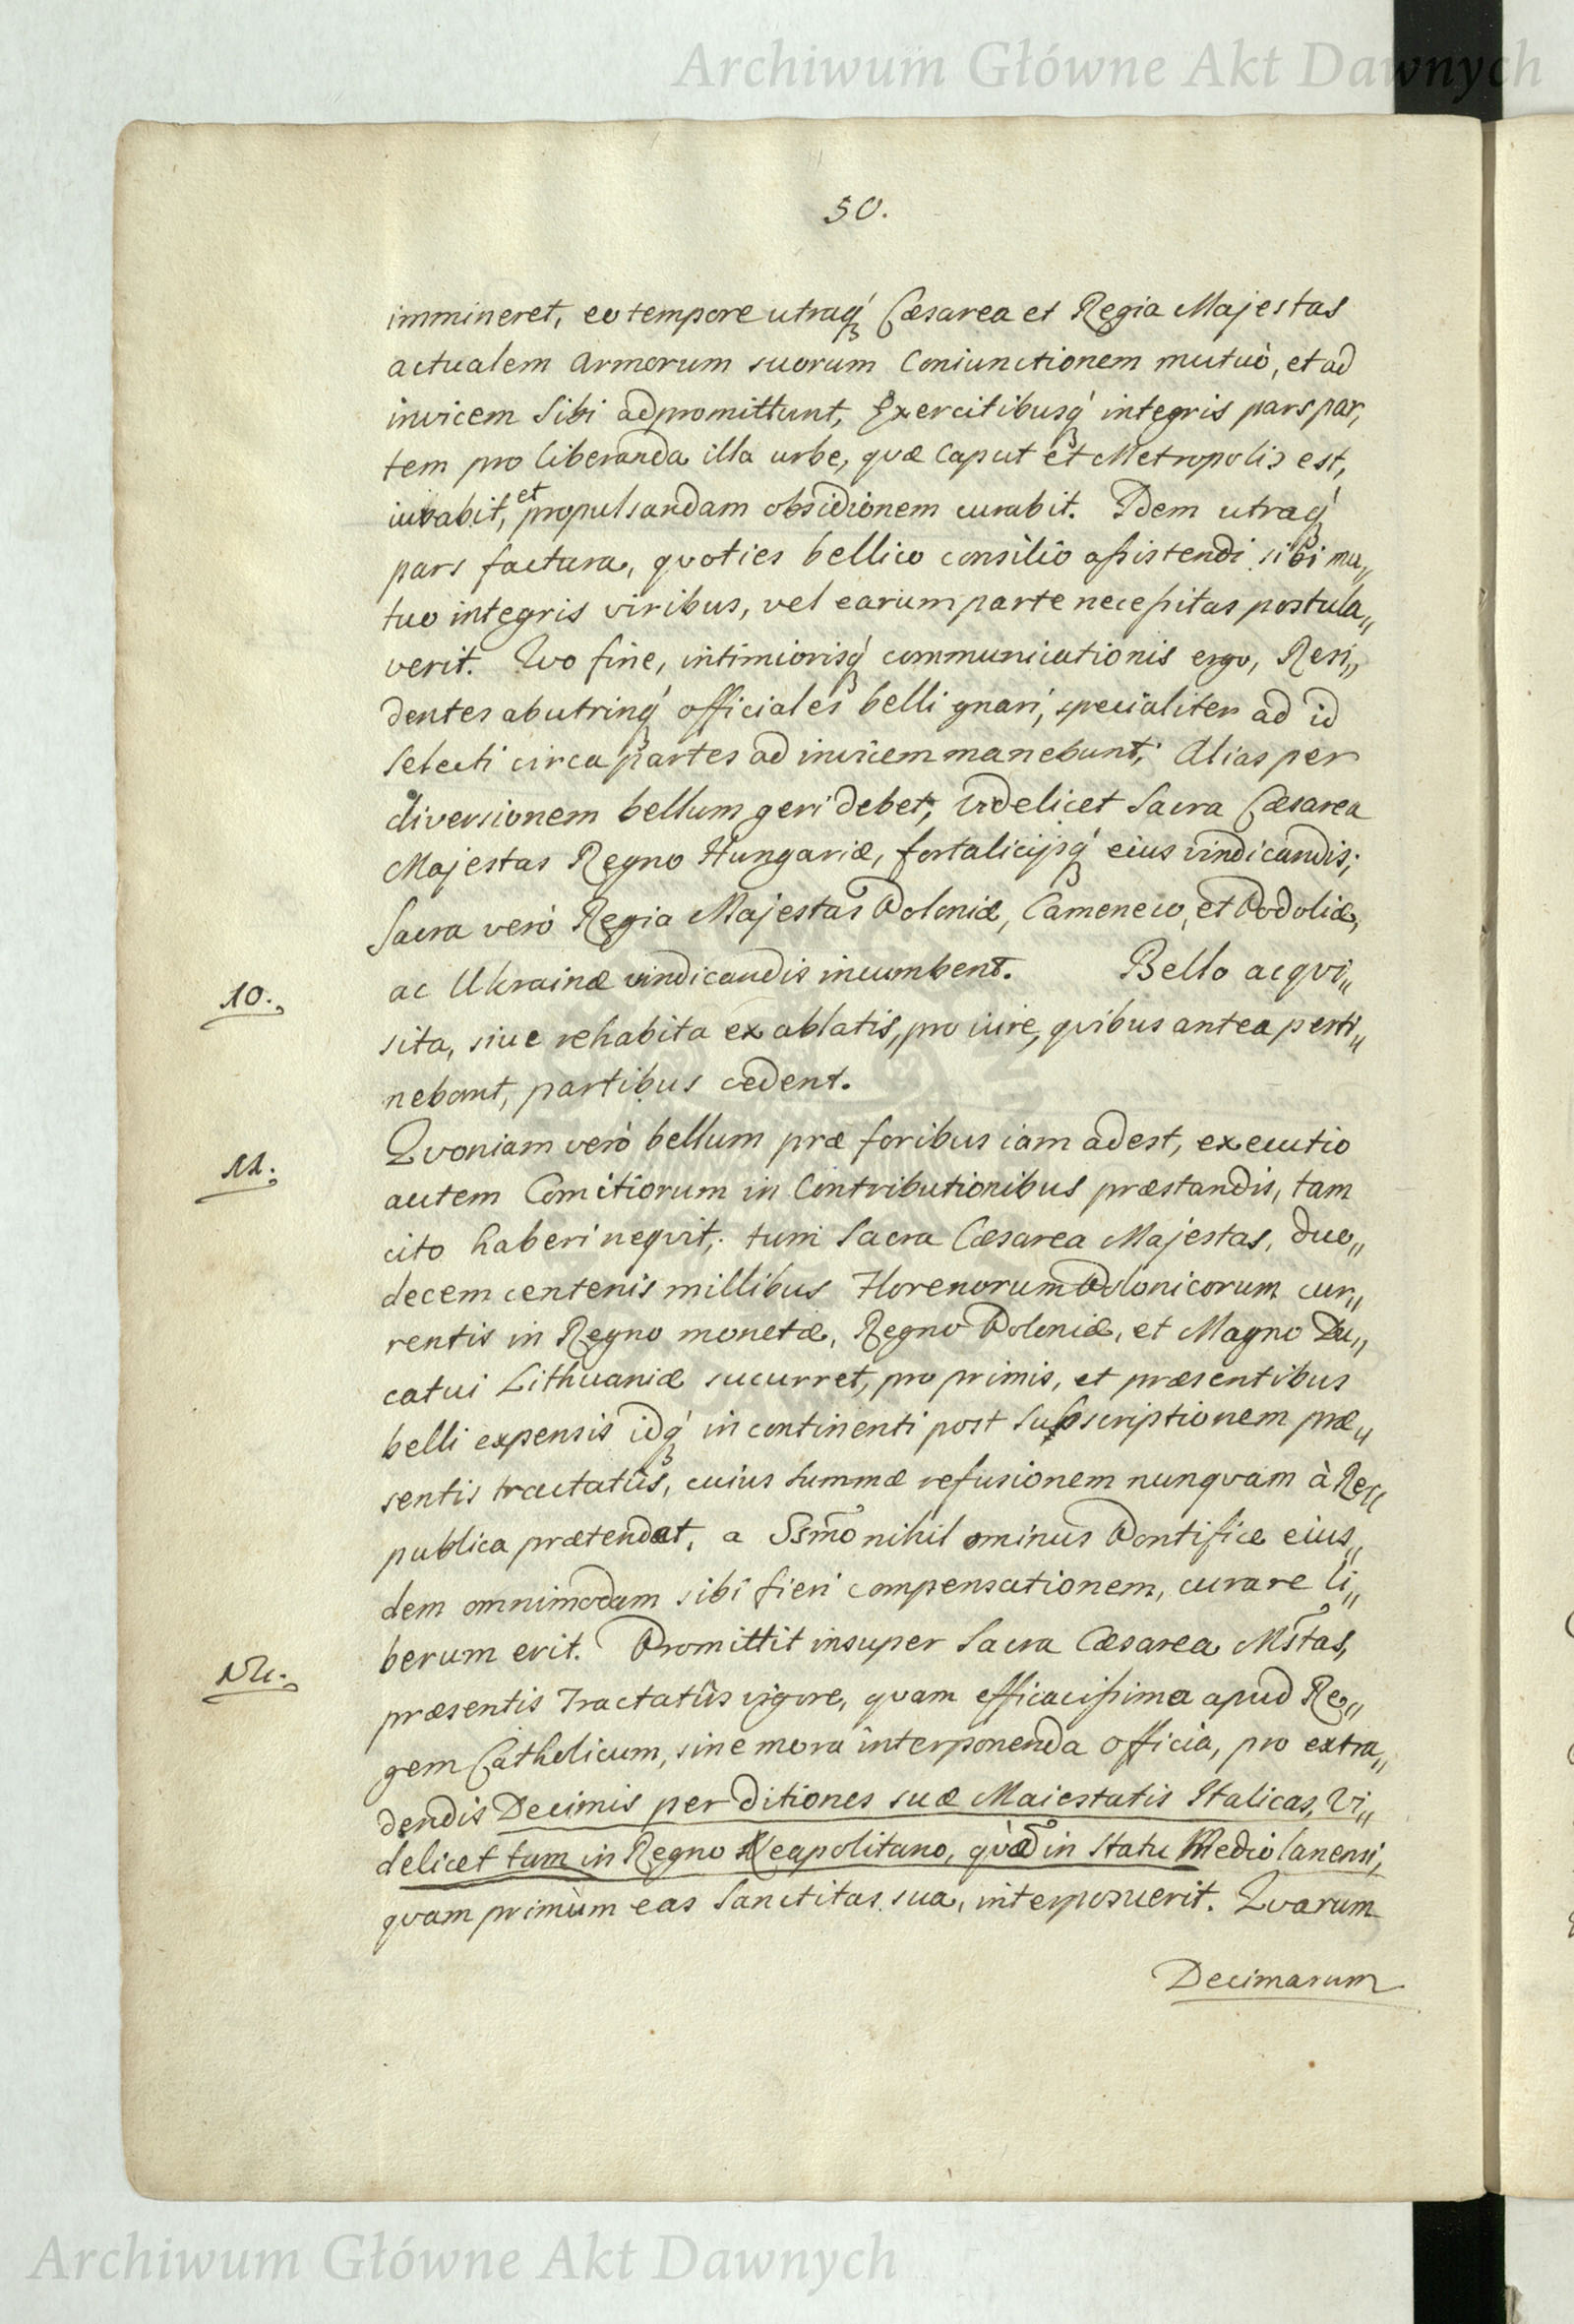 Archiwum Główne Akt Dawnych
50.
immineret, eo tempore utraq́ Cæsarea et Regia Majestas
actualem Armorum suorum Coniunctionem mutuò, et ad
invicem Sibi adpromittunt, Exercitibusq́ integris pars par,
tem pro liberanda illa urbe, quæ Caput et Metropolis est,
iuvabit, et propulsandam obsidionem curabit. Idem utraq́
pars factura, quoties bellico consilio assistendi sibi mu„
tuo integris viribus, vel earum parte necessitas postula„
verit. Quo fine, intimiorisq́ communicationis ergo, Resi„
dentes ab utrinq́ officiales belli gnari, specialiter ad id
Selecti circa partes ad invicem manebunt; Alias per
diversionem bellum geri debet, Videlicet Sacra Cæsarea
Majestas Regno Hungariæ, fortalicijsq́ eius vindicandis;
Sacra verò Regia Majestas Poloniæ, Cameneco, et Podoliæ,
ac Ukrainæ vindicandis incumbent. Bello acqvi„
10.
sita, sive rehabita ex ablatis, pro iure, qvibus antea perti„
nebant, partibus cedent.
11.
Qvoniam verò bellum præ foribus iam adest, executio
autem Comitiorum in Contributionibus præstandis, tam
cito haberi neqvit; tum Sacra Cæsarea Majestas, duo„
decem centenis millibus Florenorum Polonicorum cur„
rentis in Regno monetæ, Regno Poloniæ, et Magno Du„
catui Lithuaniæ sucurret, pro primis, et præsentibus
belli expensis idq́ in continenti post Subscriptionem præ„
sentis tractatûs, cuius Summæ refusionem nunqvam à Re„
publica prætendet, a Ssm̃o nihil ominus Pontifice eius„
dem omnimodam sibi fieri compensationem, curare li„
berum erit. Promittit insuper Sacra Cæsarea Ms̃tas,
12.
præsentis Tractatûs vigore, quam efficacissima apud Re„
gem Catholicum, sine mora interponenda officia, pro extra„
dendis Decimis per ditiones suæ Maiestatis Italicas, Vi„
delicet tam in Regno Neapolitano, qvàm in Statu Mediolanensi,
qvam primùm eas Sanctitas sua, interposuerit. Qvarum
Decimarum
Archiwum Główne Akt Dawnych